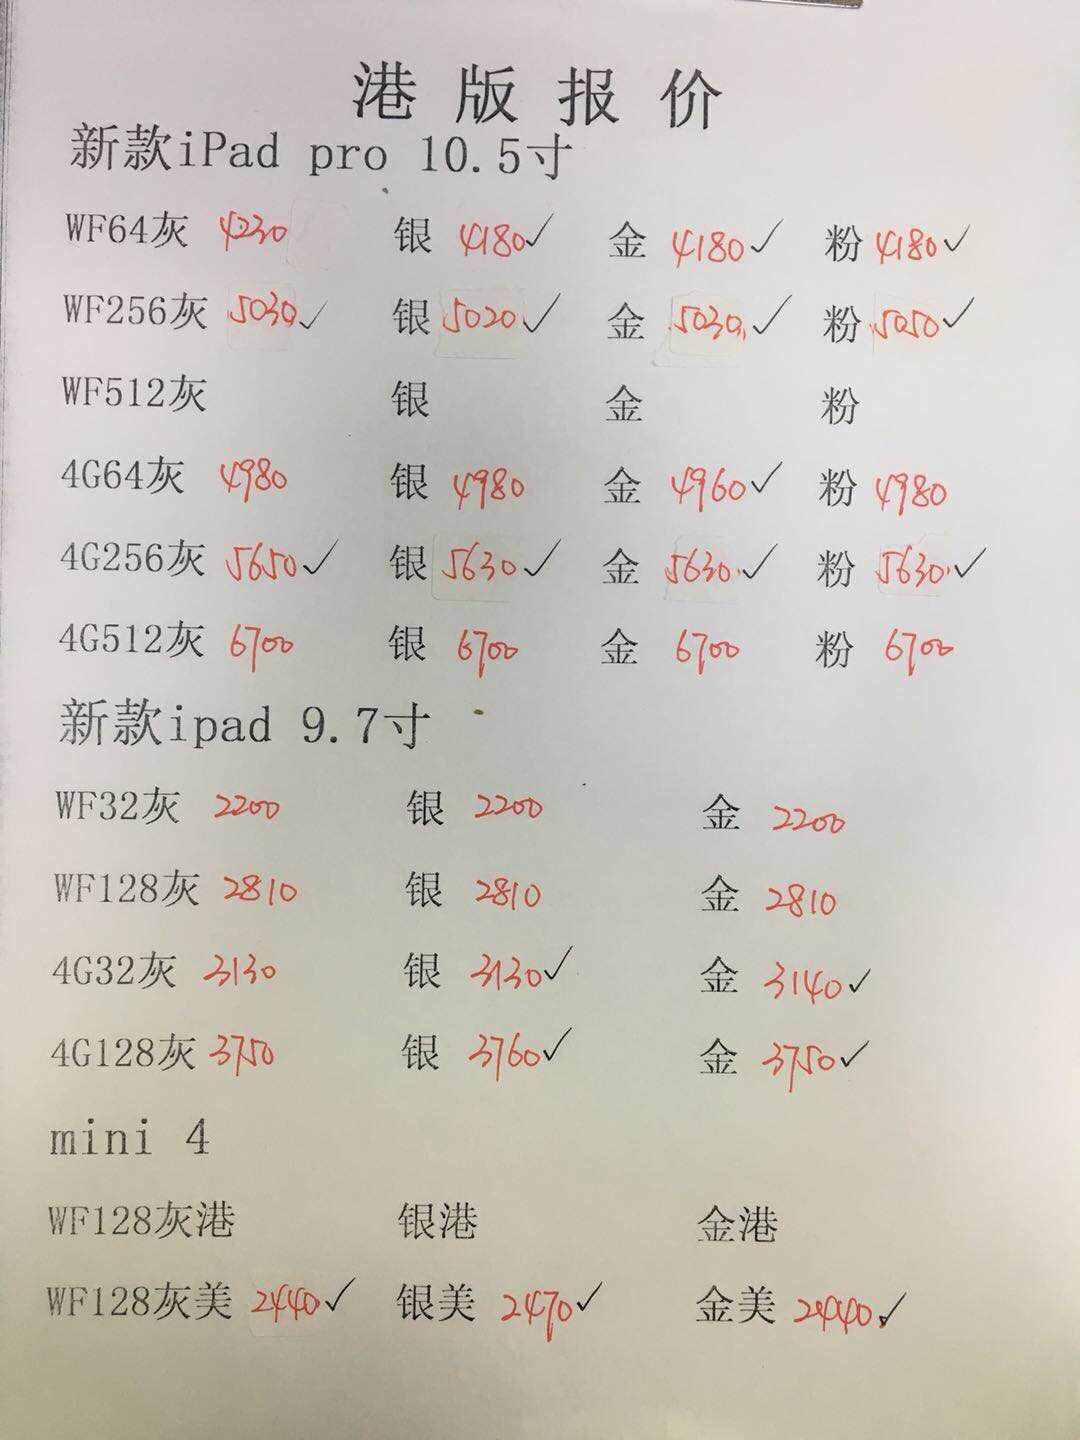 港版报价
新款iPad pro 10.5寸
WF64灰 4230 银 4180✓ 金 4180✓ 粉 4180✓
WF256灰 5030✓ 银 5020✓ 金 5030✓ 粉 5050✓
WF512灰 银 金 粉
4G64灰 4980 银 4980 金 4960✓ 粉 4980
4G256灰 5650✓ 银 5630✓ 金 5630✓ 粉 5630✓
4G512灰 6700 银 6700 金 6700 粉 6700
新款ipad 9.7寸
WF32灰 2200 银 2200 金 2200
WF128灰 2810 银 2810 金 2810
4G32灰 3130 银 3130✓ 金 3140✓
4G128灰 3750 银 3760✓ 金 3750✓
mini 4
WF128灰港 银港 金港
WF128灰美 2440✓ 银美 2470✓ 金美 2440✓